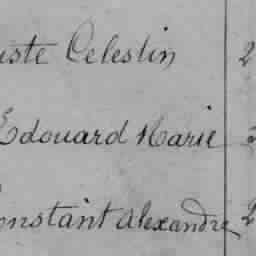 iste Celestin 2
Edouard Marie
onstant alexandre 2